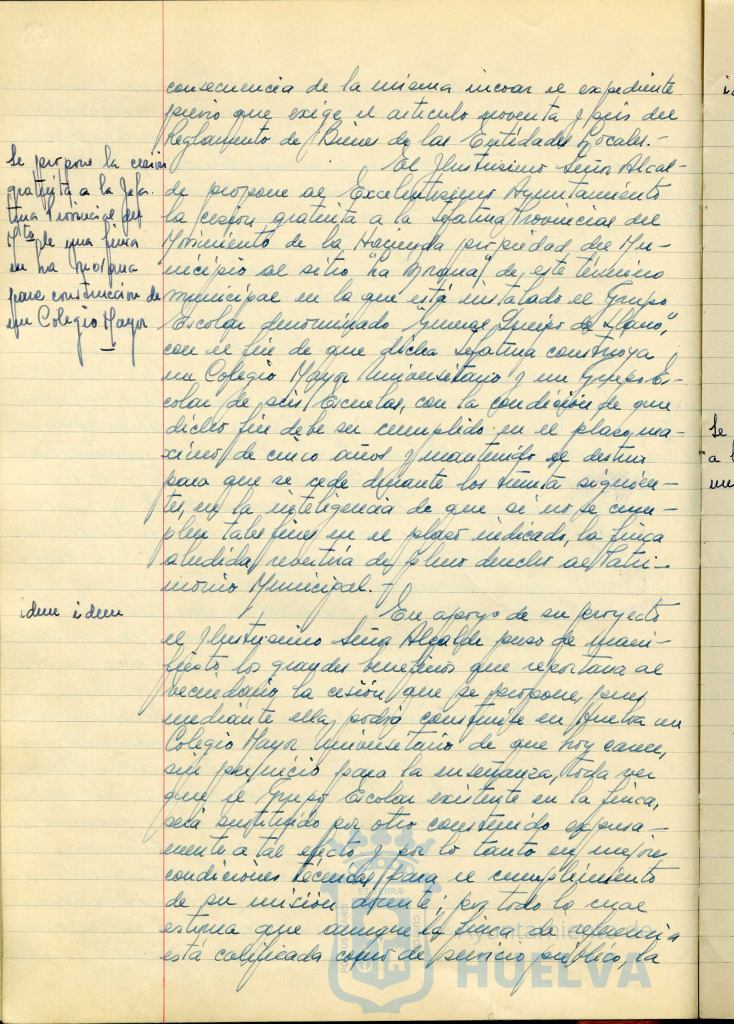 consecuencia de la misma incoar el expediente
previo que exige el artículo noventa y seis del
Reglamento de Bienes de las Entidades Locales.-
El Ilustrísimo Señor Alcal-
de propone al Excelentísimo Ayuntamiento
la cesión gratuita a la Jefatura Provincial del
Movimiento de la Hacienda propiedad del Mu-
nicipio al sitio "La Morana" de este término
municipal en la que está instalado el Grupo
Escolar denominado "General Queipo de Llano",
con el fin de que dicha Jefatura construya
un Colegio Mayor Universitario y un Grupo Es-
colar de seis Escuelas, con la condición de que
dicho fin debe ser cumplido en el plazo má-
ximo de cinco años y mantenido el destino
para que se cede durante los treinta siguien-
tes, en la inteligencia de que si no se cum-
plen tales fines en el plazo indicado, la finca
aludida revertiría de pleno derecho al Patri-
monio Municipal.-
Se propone la cesión
gratuita a la Jefa-
tura Provincial del
Mto de una finca
en La
para construcción de
un Colegio Mayor
idem idem
En apoyo de su proyecto
el Ilustrísimo Señor Alcalde puso de mani-
fiesto los grandes beneficios que reportaría al
vecindario la cesión que se propone, pues
mediante ella, podrá construirse en Huelva un
Colegio Mayor Universitario de que hoy carece,
sin perjuicio para la enseñanza, toda vez
que el Grupo Escolar existente en la finca,
será sustituido por otro construido expresa-
mente a tal efecto y por lo tanto en mejores
condiciones técnicas para el cumplimiento
de su misión docente; por todo lo cual
estima que aunque la finca de referencia
está calificada como de servicio público, la
Ayuntamiento de
HUELVA